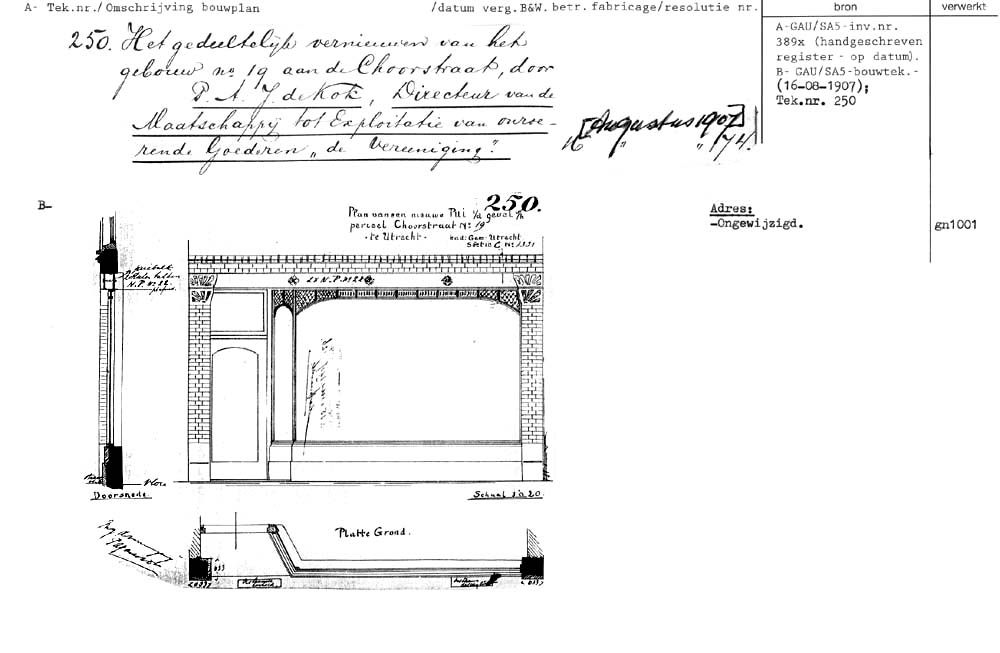 A- Tek.nr./Omschrijving bouwplan /datum verg.B&W.betr.fabricage/resolutie nr. bron verwerkt
250. Het gedeeltelijk vernieuwen van het
gebouw no 19 aan de Choorstraat, door
P. A. J. de Kok, Directeur van de
Maatschappij tot Exploitatie van onroe-
rende Goederen „de Vereeniging".
[Augustus 1907]
16 " " 174.
A-GAU/SA5-inv.nr.
389x (handgeschreven
register - op datum).
B- GAU/SA5-bouwtek.-
(16-08-1907);
Tek.nr. 250
B-
250.
Plan van een nieuwe Pui
perceel Choorstraat No 19
-te Utrecht-
kad: Gem- Utrecht
Sectie C, No 1331
Adres:
-Ongewijzigd.
gn1001
N.P. No 22
2x N.P. No 22
Vloer
Doorsnede.
Schaal 1 à 20.
Platte Grond.
033
033